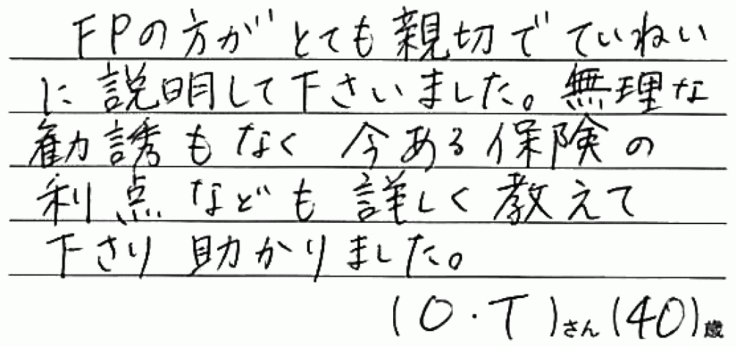 FPの方がとても親切でていねい
に説明して下さいました。無理な
勧誘もなく 今ある保険の
利点なども詳しく教えて
下さり 助かりました。
(O・T)さん(40)歳